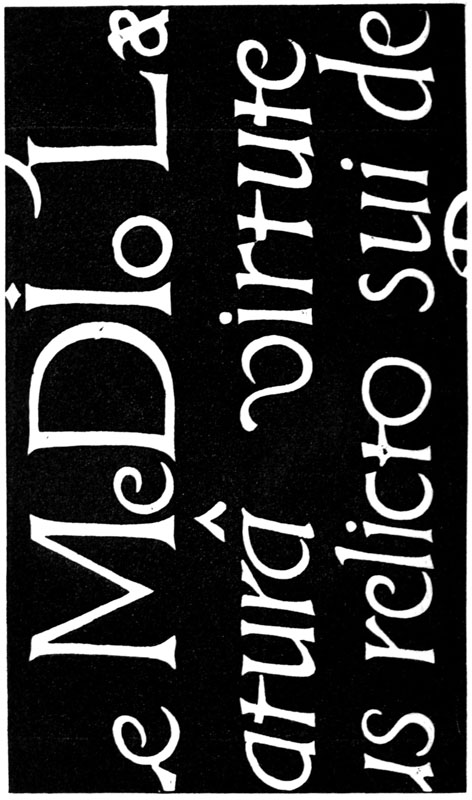 e MeDIo L &
aturâ virtute
is relicto sui de